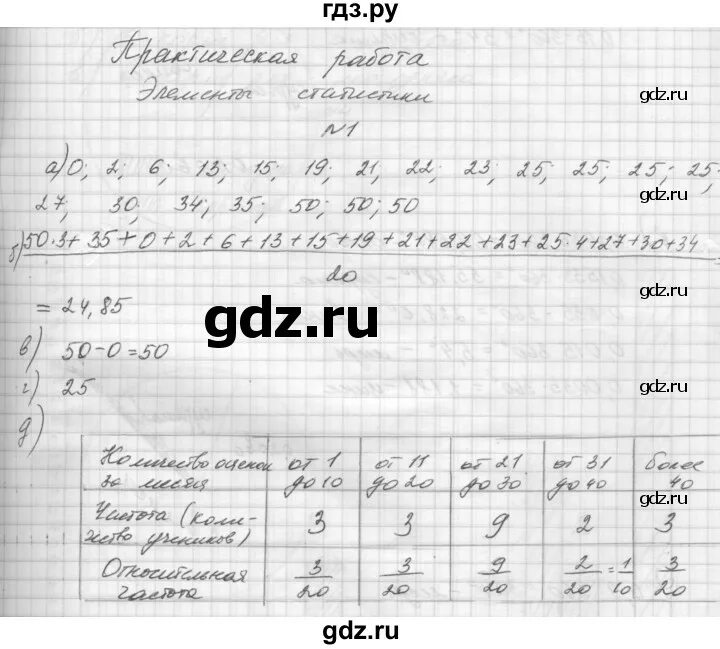 гдз.ру
Практическая работа
Элементы статистики
gdz.ru
№1
а) 0; 2; 6; 13; 15; 19; 21, 22; 23; 25, 25; 25; 25;
gdz.ru
27; 30; 34; 35; 50; 50; 50
б) 50·3+35+0+2+6+13+15+19+21+22+23+25·4+27+30+34 =
20
gdz.ru
= 24,85
gdz.ru
в) 50-0=50
г) 25
gdz.ru
д)
Количество оценок за месяц от 1 до 10 от 11 до 20 от 21 до 30 от 31 до 40 более 40
gdz.ru
Частота (коли-
чество учеников) 3 3 9 2 3
Относительная частота 3/20 3/20 9/20 2/20=1/10 3/20
gdz.ru
gdz.ru